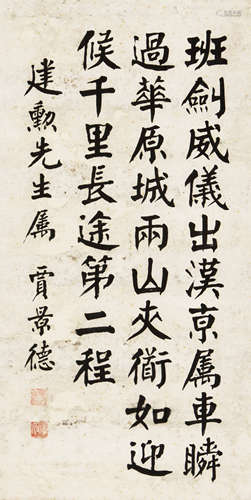 班劍威儀出漢京属車瞬
過華原城兩山夾衛如迎
候千里長途第二程
建勲先生属 賈景德